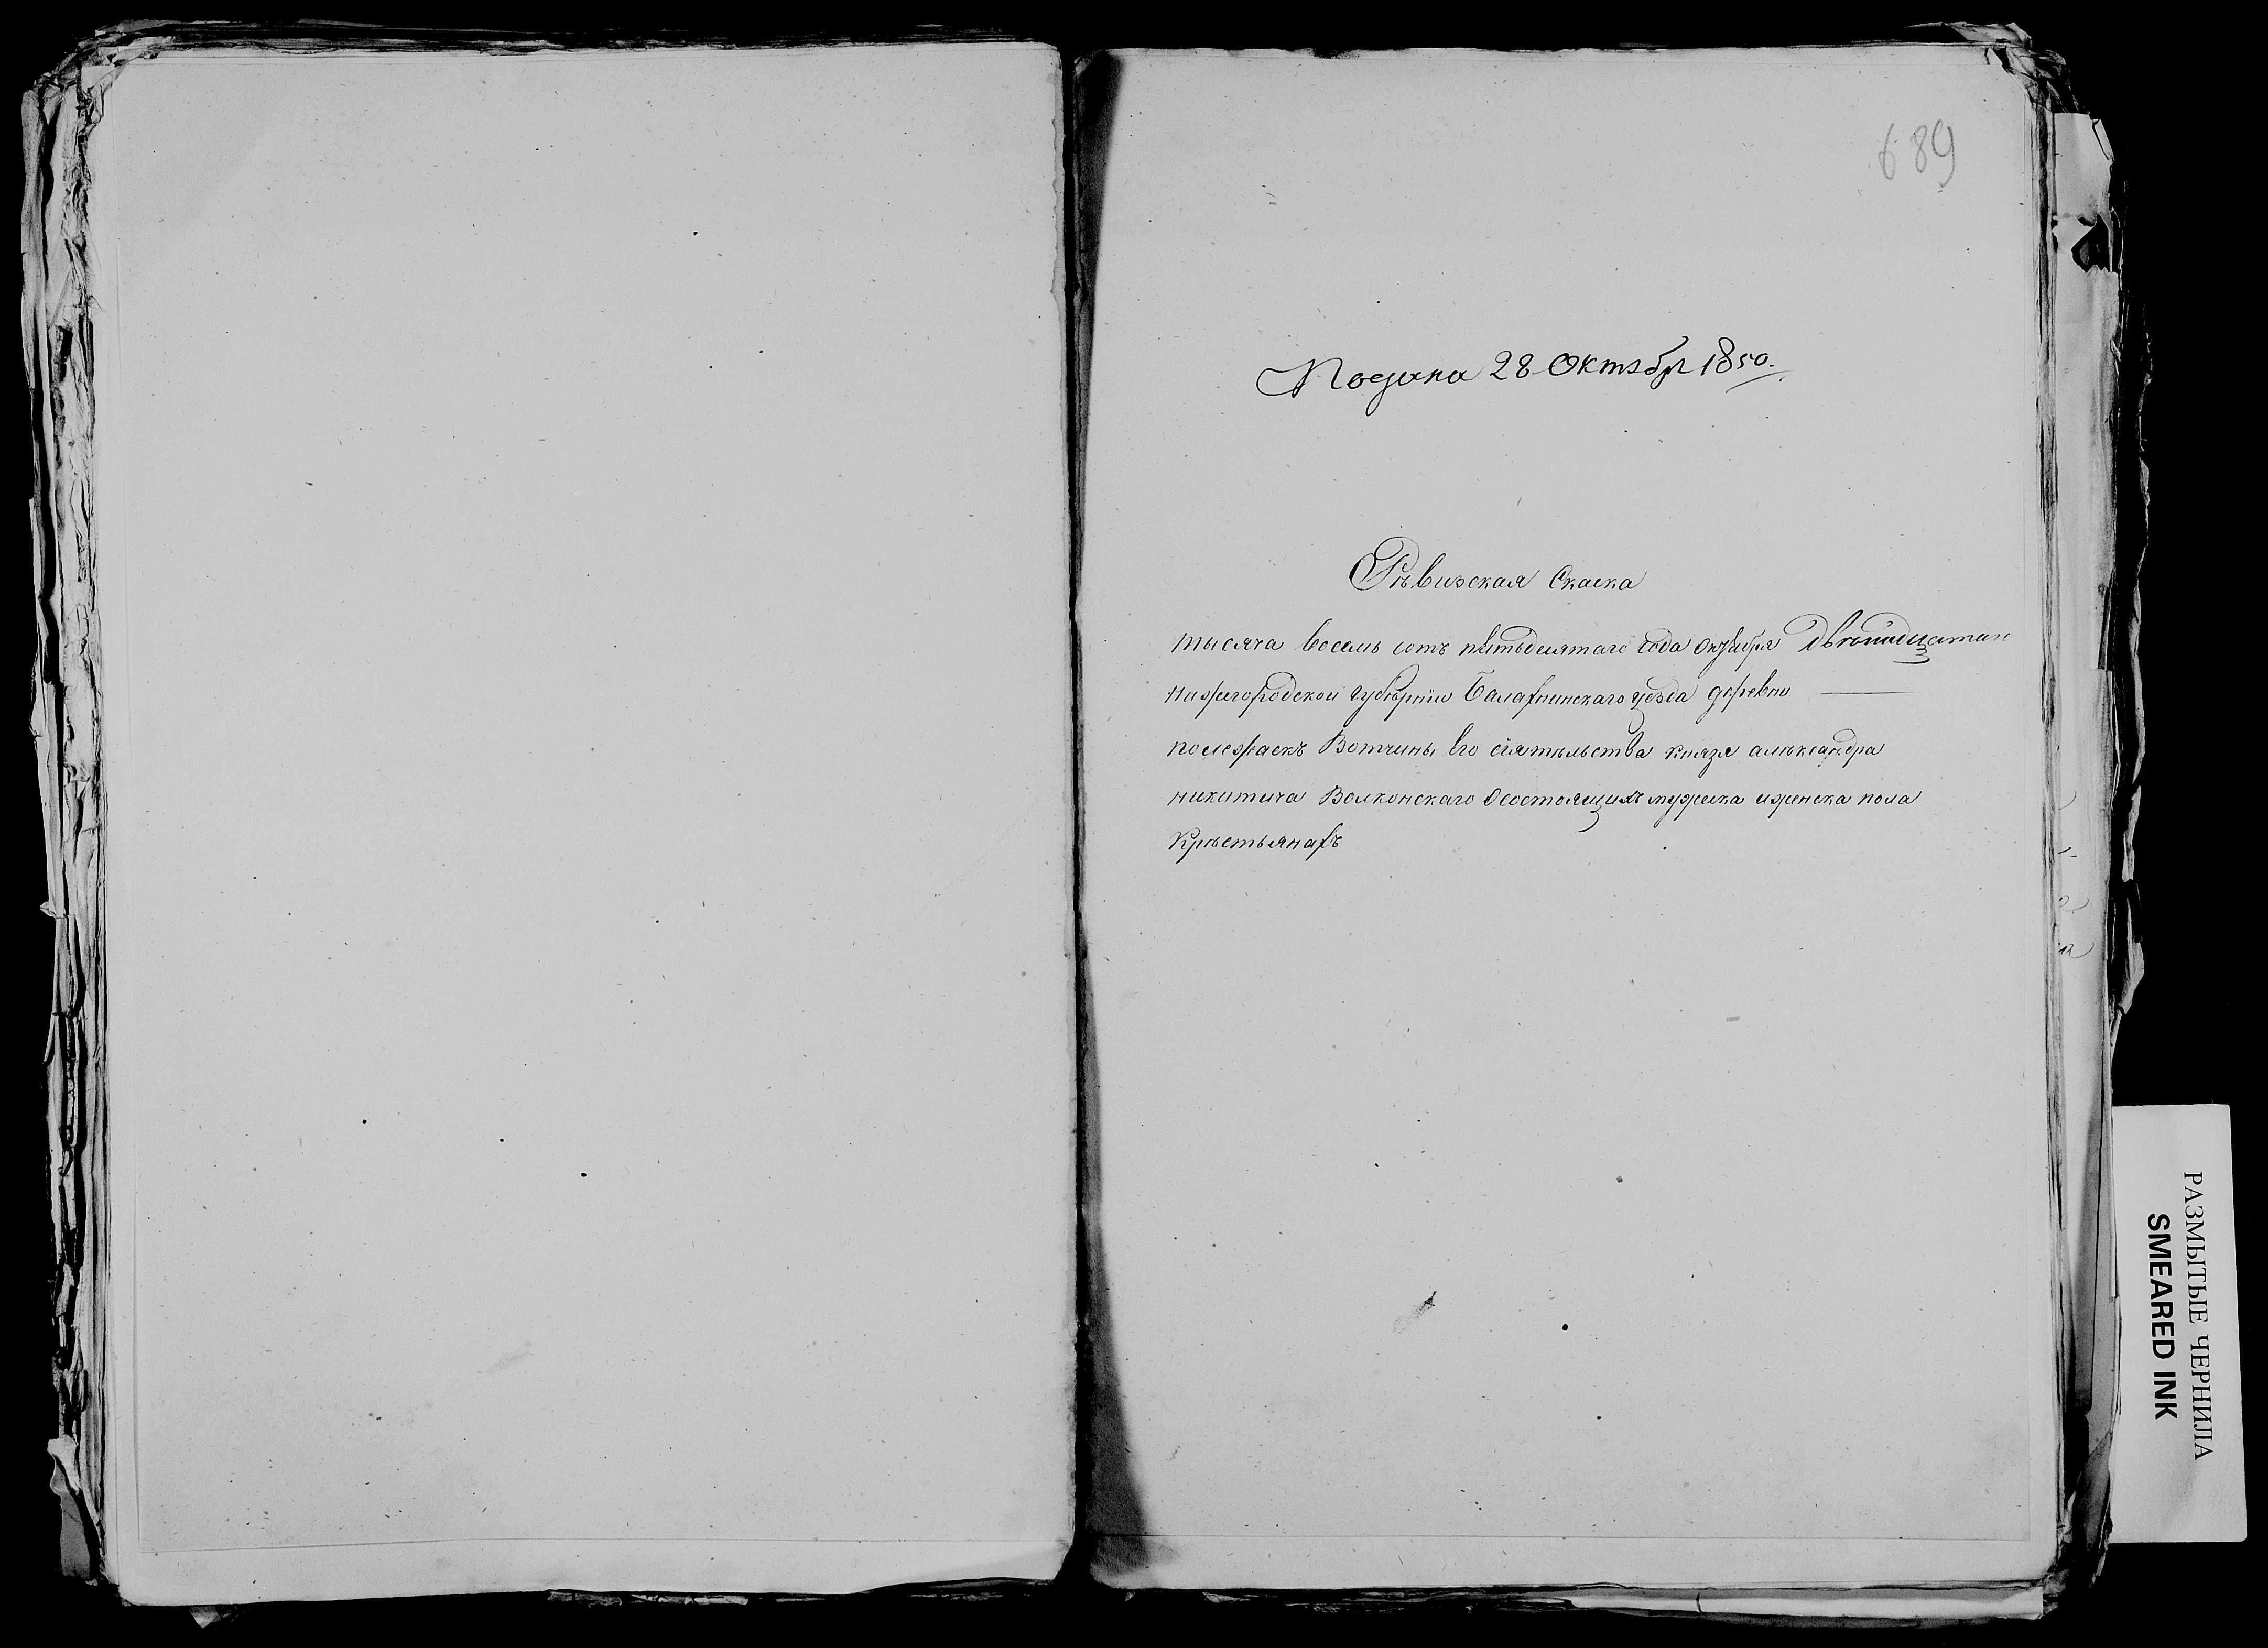 689
Подана 28 Октябр 1850.
Рѣвизская Скаска
тысяча восемь сотъ пѣтьдесятаго года октября
нижегородской губѣрнїи Балахнинскаго уѣзда деревни
полежаекъ Вотчины Его сїятѣльства князя алѣксандра
никитича Волконскаго Осостоящихъ мужеска иженска пола
Крѣстьянахъ
РАЗМЫТЫЕ ЧЕРНИЛА
SMEARED INK